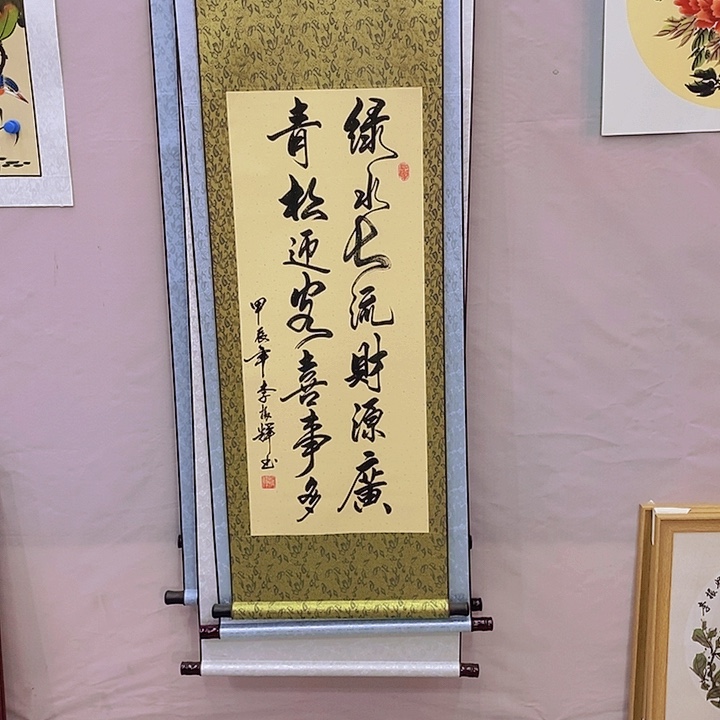 绿水长流财源廣
青松迎客喜事多
甲辰年李振辉书